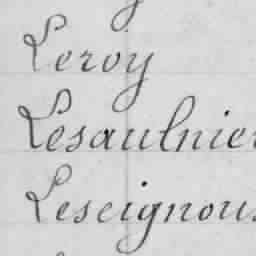 Leroy
Lesaulnier
Leseignou